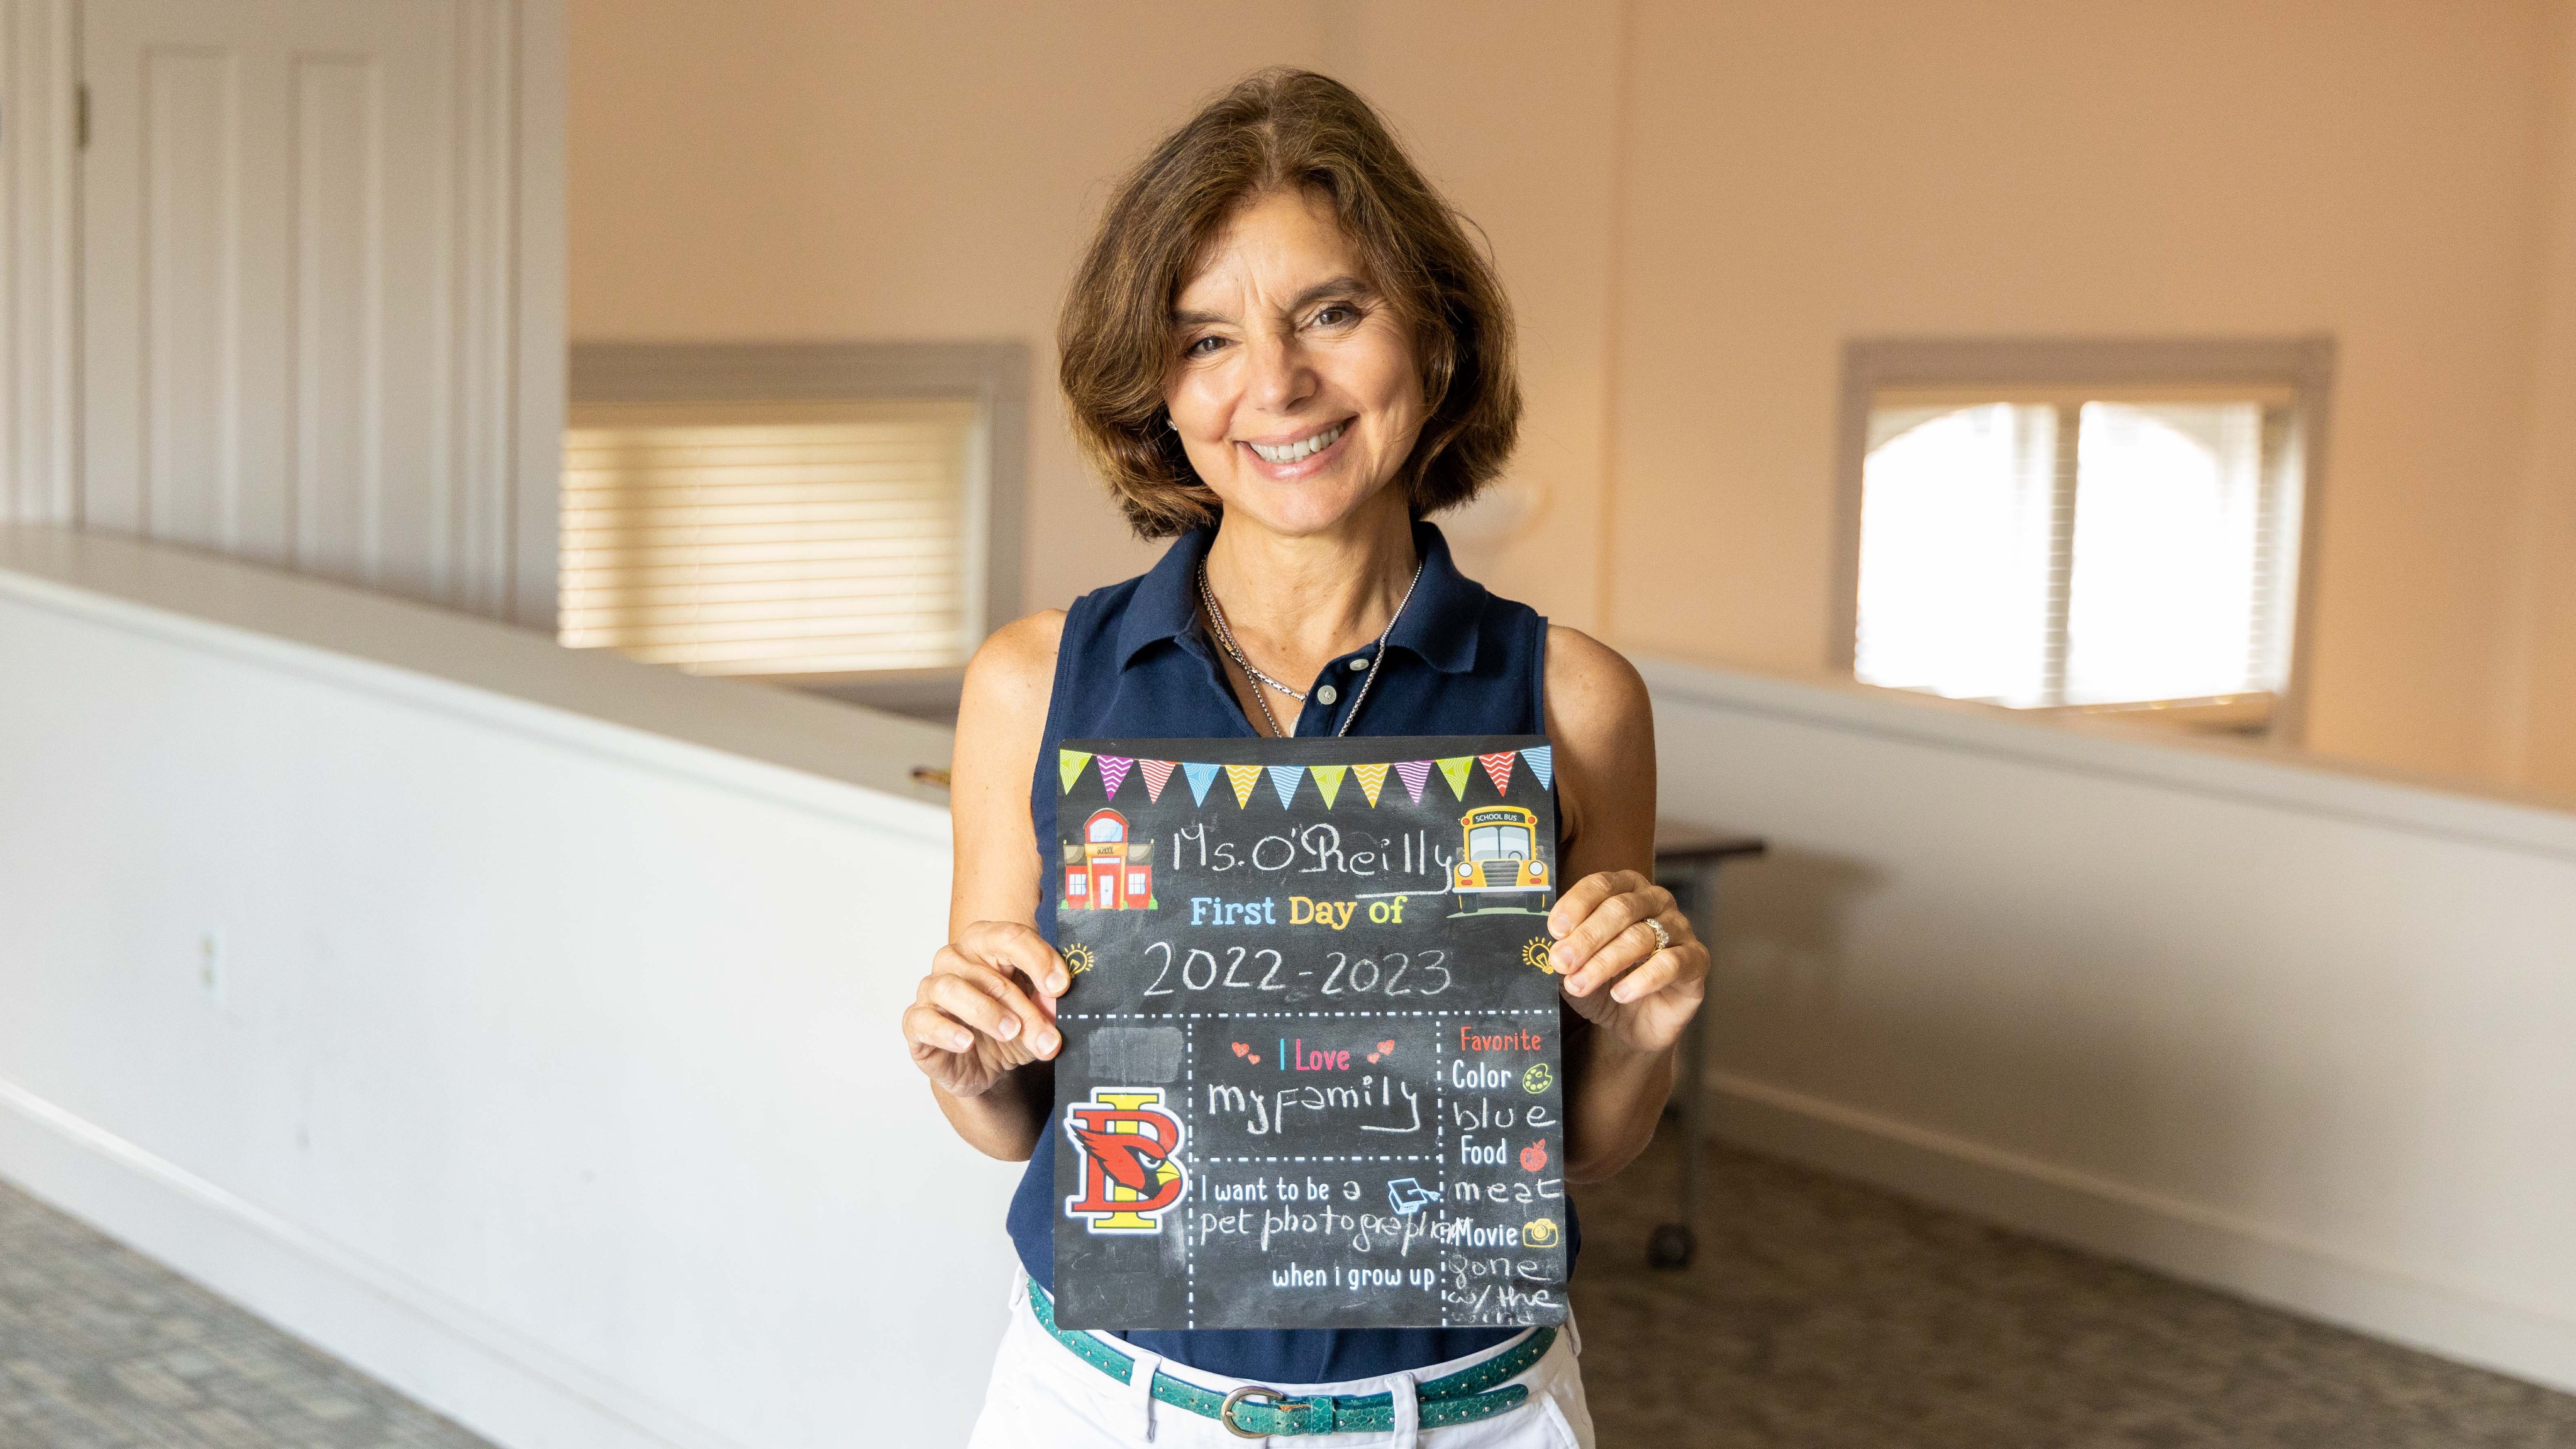 SCHOOL BUS
SCHOOL
Ms. O'Reilly
First Day of
2022-2023
I Love
my Family
I want to be a
pet photographer
when i grow up
Favorite
Color
blue
Food
meat
Movie
gone
w/the
wind
BI